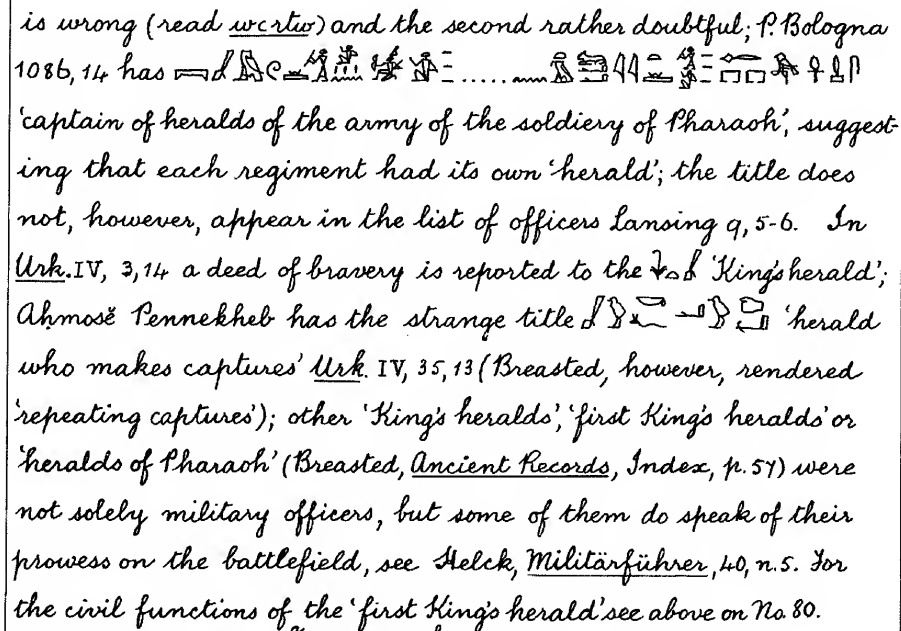 is wrong (read wcrtw) and the second rather doubtful; P. Bologna
1086, 14 has ..... 
'captain of heralds of the army of the soldiery of Pharaoh', suggest-
ing that each regiment had its own 'herald'; the title does
not, however, appear in the list of officers Lansing 9, 5-6. In
Urk. IV, 3, 14 a deed of bravery is reported to the 'King's herald';
Ahmosĕ Pennekheb has the strange title 'herald
who makes captures' Urk. IV, 35, 13 (Breasted, however, rendered
'repeating captures'); other 'King's heralds', 'first King's heralds' or
'heralds of Pharaoh' (Breasted, Ancient Records, Index, p. 57) were
not solely military officers, but some of them do speak of their
prowess on the battlefield, see Helck, Militärführer, 40, n. 5. For
the civil functions of the 'first King's herald' see above on No. 80.